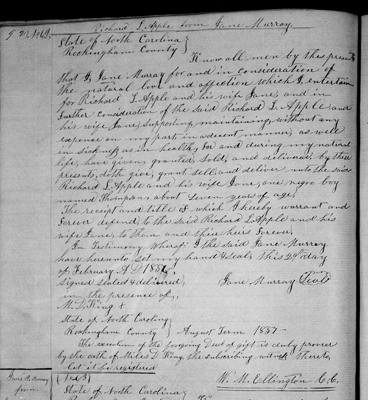 Richard L. Apple from Jane Murray
State of North Carolina }
Rockingham County }
Know all men by these presents
that I Jane Murray for and in consideration of
the natural love and affection which I entertain
for Richard L. Apple and his wife Jane, and in
further consideration of the said Richard L. Apple and
his wife Jane, supporting, maintaining, without any
expense on my part, in a decent manner, as well
in sickness as in health, for and during my natural
life, have given, granted, sold, and delivered, by these
presents, doth give, grant, sell and deliver unto the said
Richard L. Apple and his wife Jane, one negro boy
named Thompson, about seven years of age,
The receipt and title of which I hereby warrant and
forever defend, to the said Richard L. Apple and his
wife Jane, to them and their heirs forever.
In Testimony whereof I the said Jane Murray
have hereunto set my hand & seal this 2nd day
of February A D
Signed Sealed & delivered }
Jane Murray (Seal)
in the presence of,
M. D. King +
State of North Carolina }
Rockingham County } August Term 1857 -
The execution of the foregoing Deed of gift is duly proven
by the oath of Miles D King the subscribing witness thereto,
let it be registered
W. M. Ellington C. C.
State of North Carolina }
Murray
from